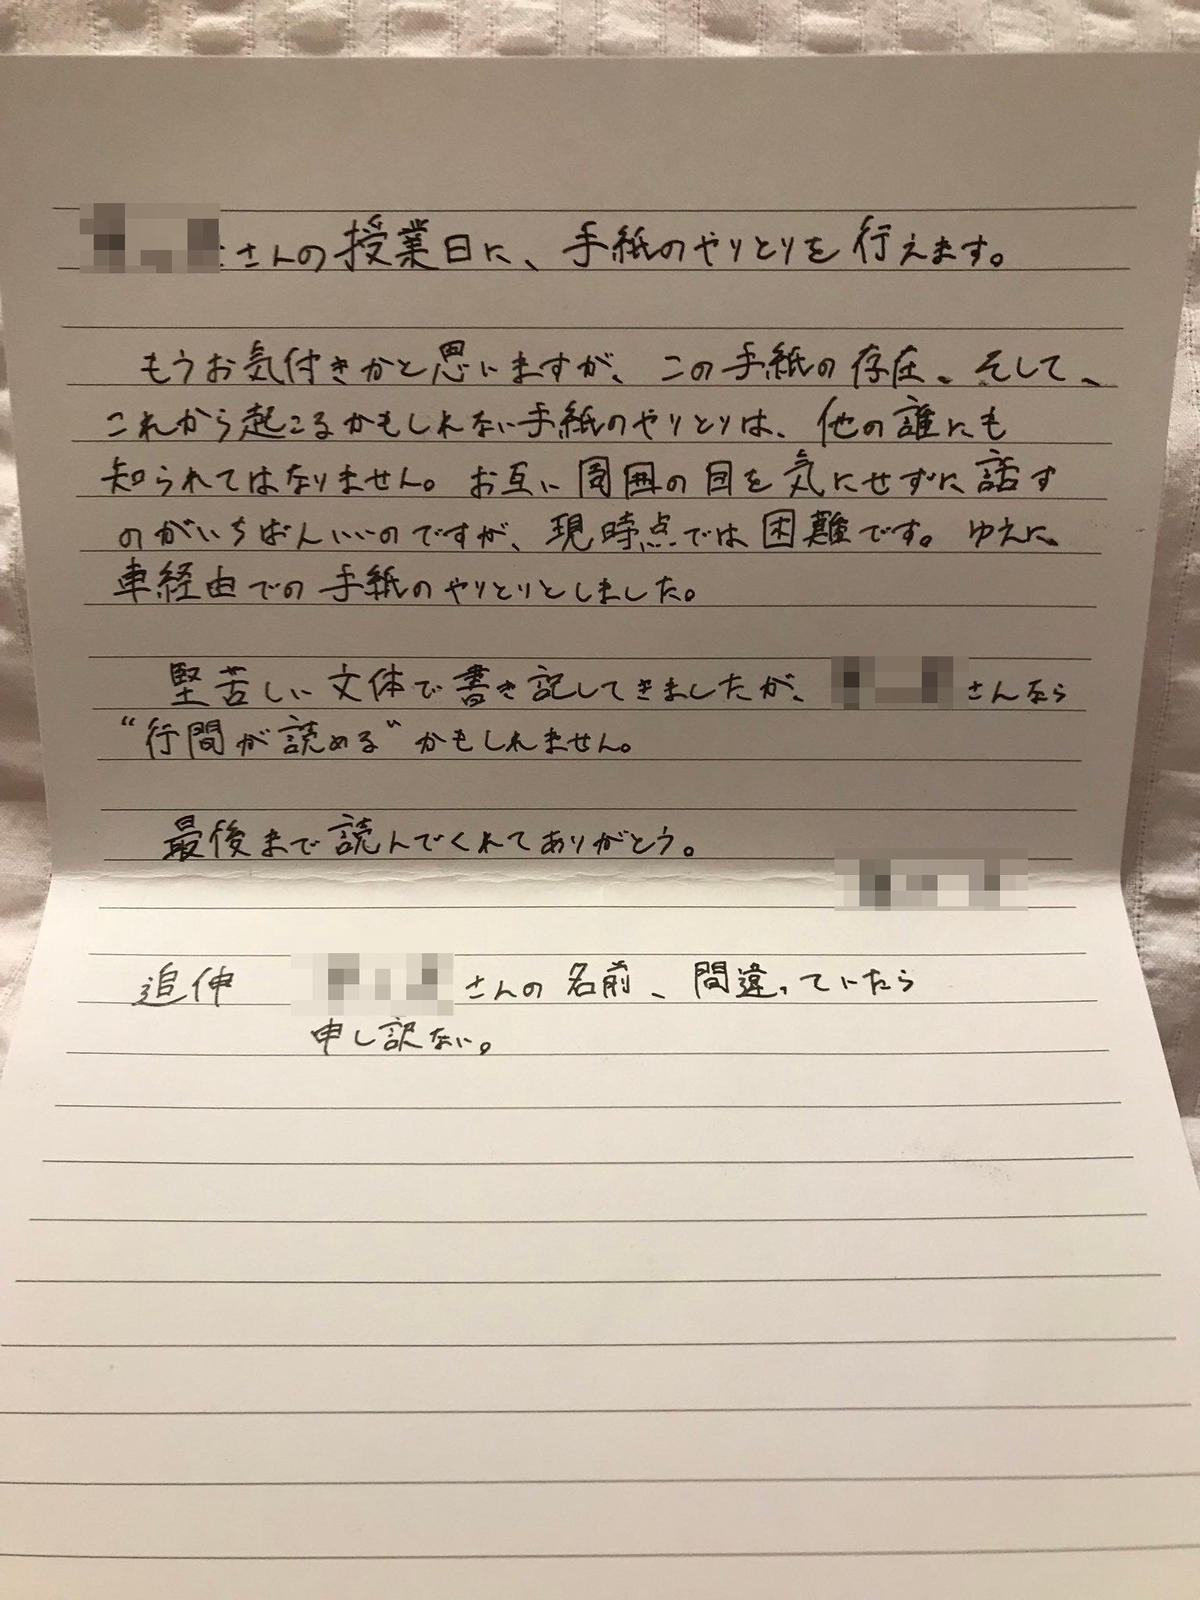 さんの授業日に、手紙のやりとりを行えます。
もうお気付きかと思いますが、この手紙の存在、そして、
これから起こるかもしれない手紙のやりとりは、他の誰にも
知られてはなりません。お互に周囲の目を気にせずに話す
のがいちばんいいのですが、現時点では困難です。ゆえに、
車経由での手紙のやりとりとしました。
堅苦しい文体で書き記してきましたが、さんなら
“行間が読める”かもしれません。
最後まで読んでくれてありがとう。
追伸 さんの名前、間違っていたら
申し訳ない。